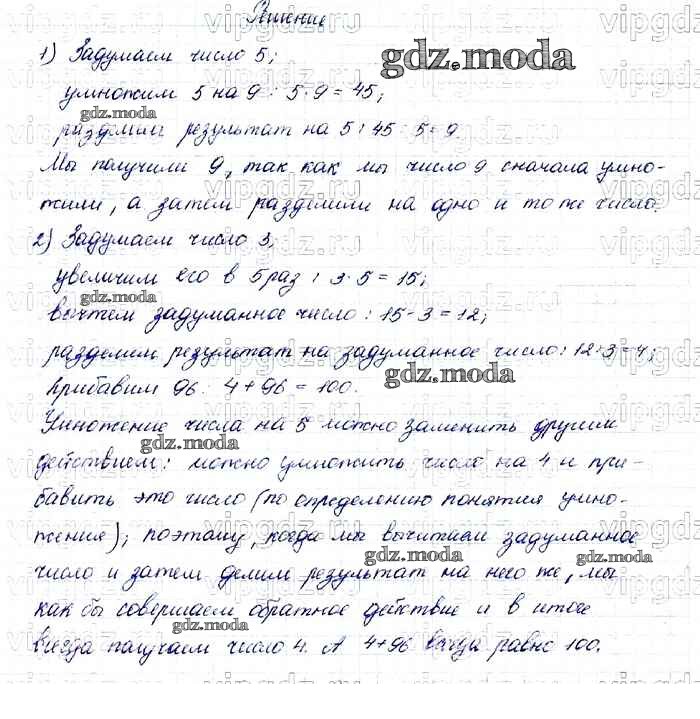 Решение
1) Задумаем число 5;
умножим 5 на 9 : 5·9 = 45;
разделим результат на 5 : 45 : 5 = 9.
Мы получили 9, так как мы число 9 сначала умно-
жили, а затем разделили на одно и то же число.
2) Задумаем число 3;
увеличим его в 5 раз : 3·5 = 15;
вычтем задуманное число : 15-3 = 12;
разделим результат на задуманное число: 12:3 = 4;
прибавим 96: 4+96 = 100.
Умножение числа на 5 можно заменить другим
действием: можно умножить число на 4 и при-
бавить это число (по определению понятия умно-
жения); поэтому, когда мы вычитаем задуманное
число и затем делим результат на него же, мы
как бы совершаем обратное действие и в итоге
всегда получаем число 4. А 4+96 всегда равно 100.
gdz.moda
gdz.moda
gdz.moda
gdz.moda
gdz.moda
gdz.moda
gdz.moda
gdz.moda
vipgdz.ru